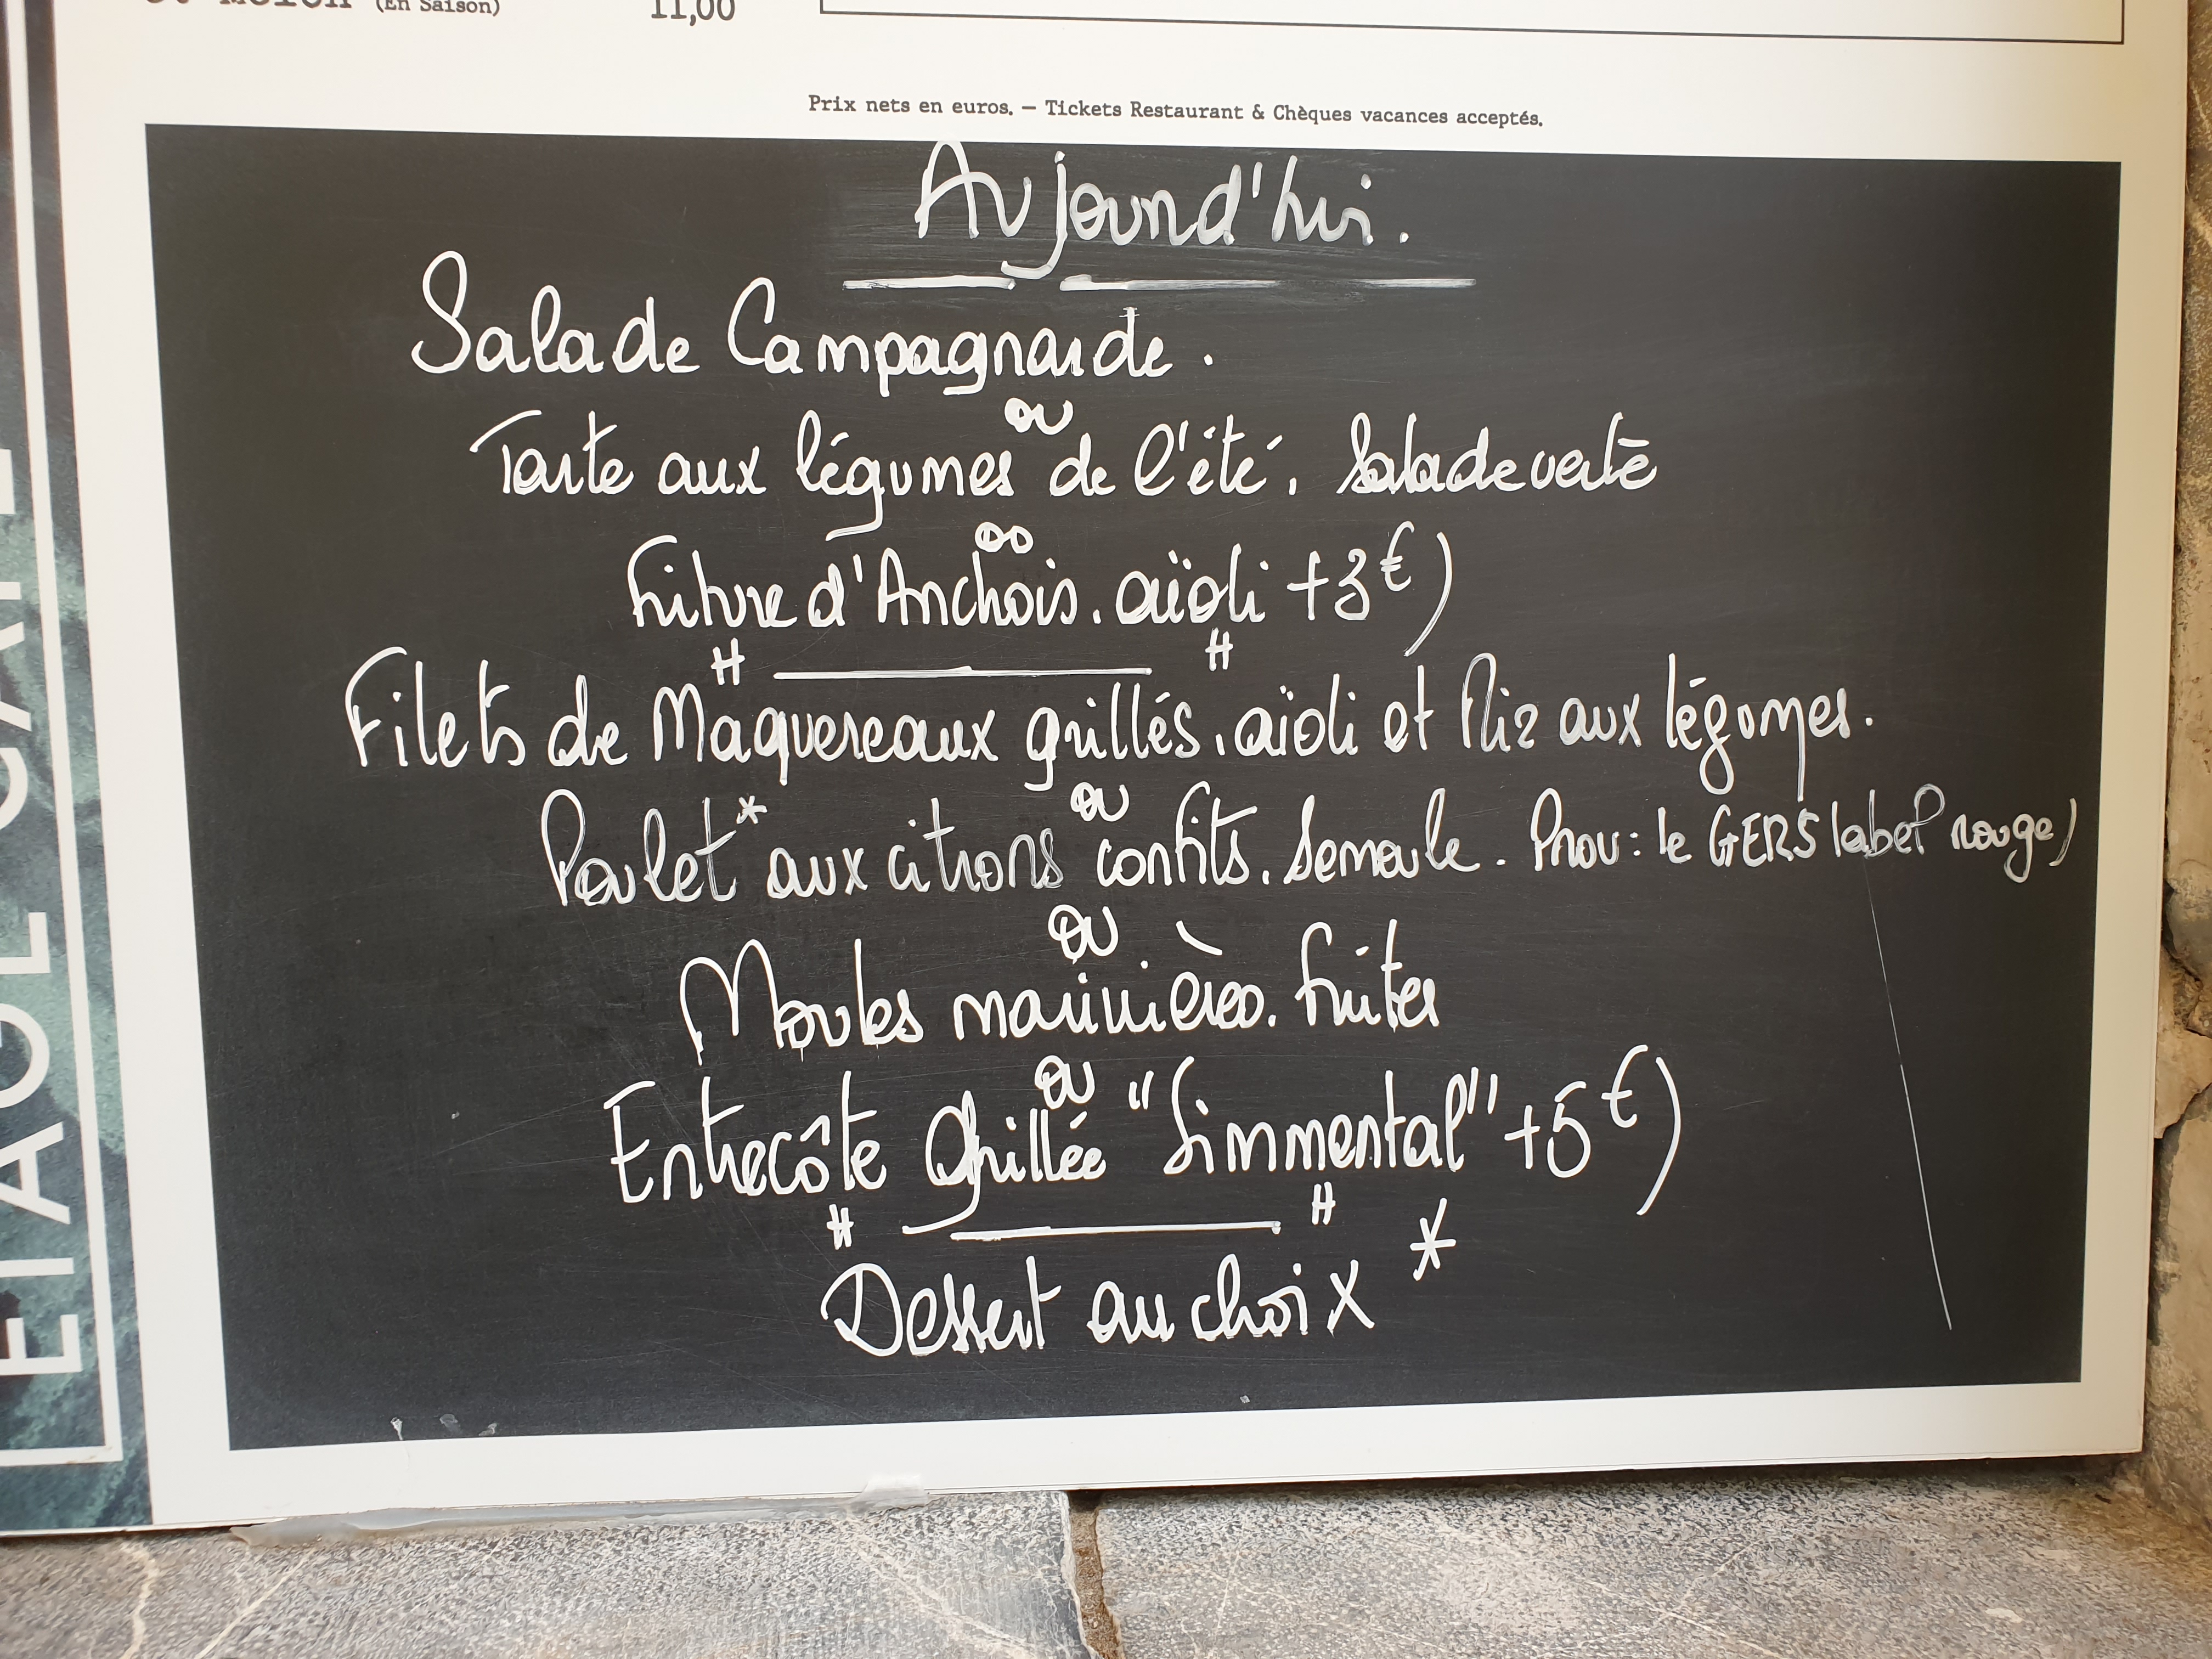 (En Saison) 11,00
Prix nets en euros. — Tickets Restaurant & Chèques vacances acceptés.
Aujourd'hui.
Salade Campagnarde.
ou
Tarte aux légumes de l'été. Salade verte
ou
Friture d'Anchois. aïoli +3€)
Filets de Maquereaux grillés. aïoli et Riz aux légumes.
ou
Poulet* aux citrons confits. Semoule. Prov: le GERS label rouge)
ou
Moules marinières. frites
ou
Entrecôte Grillée "Simmental" +5€)
Dessert au choix *